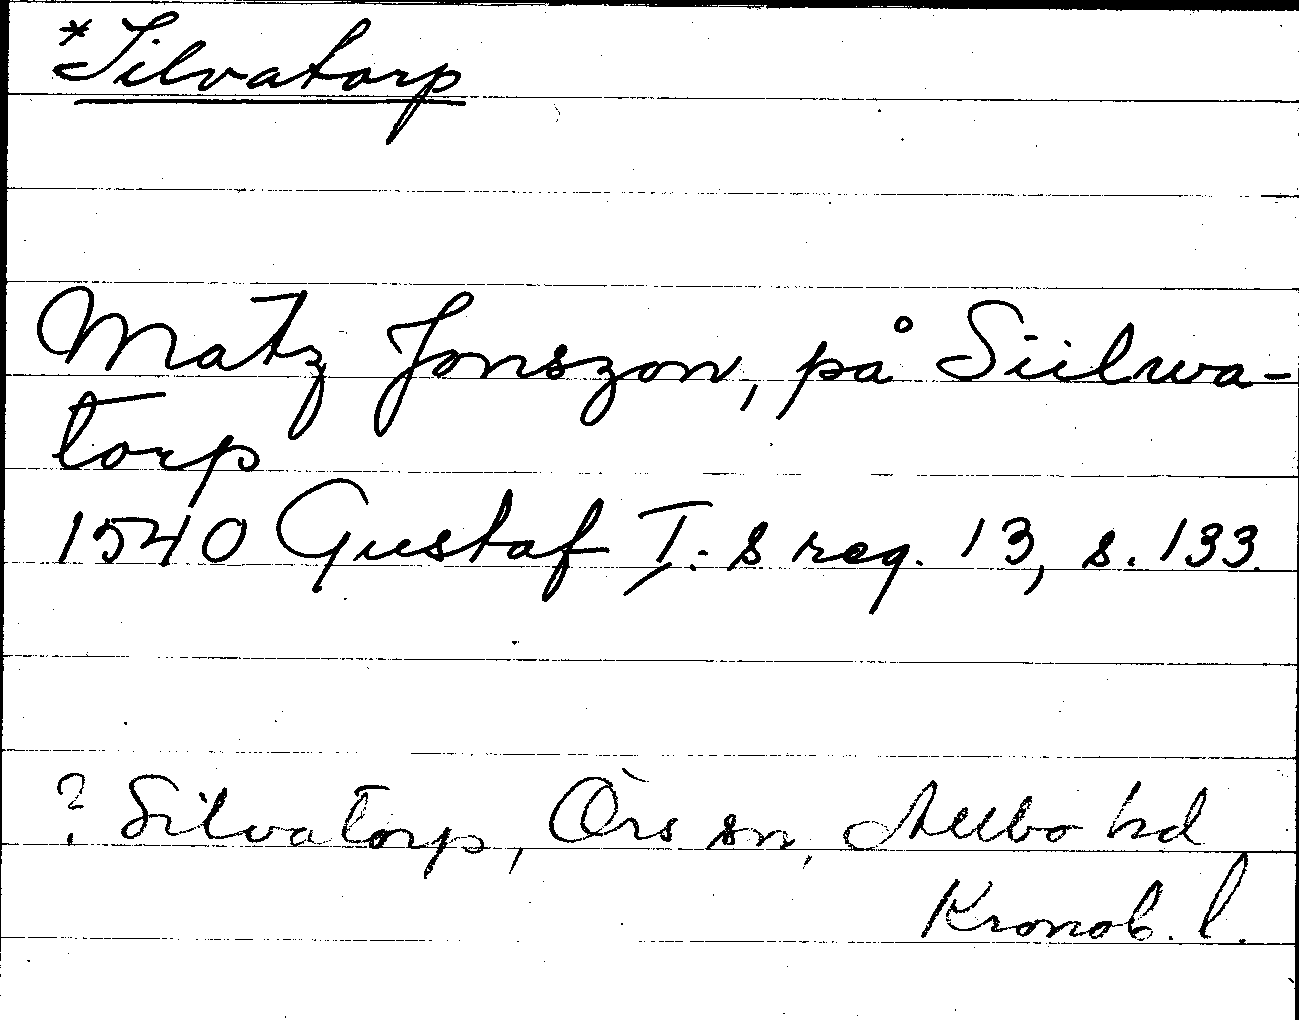 *Silvatorp
Matz Jonszon, på Siilwa-
torp
1540 Gustaf I:s reg. 13, s. 133.
? Silvatorp, Örs sn, Allbo hd
Kronob. l.